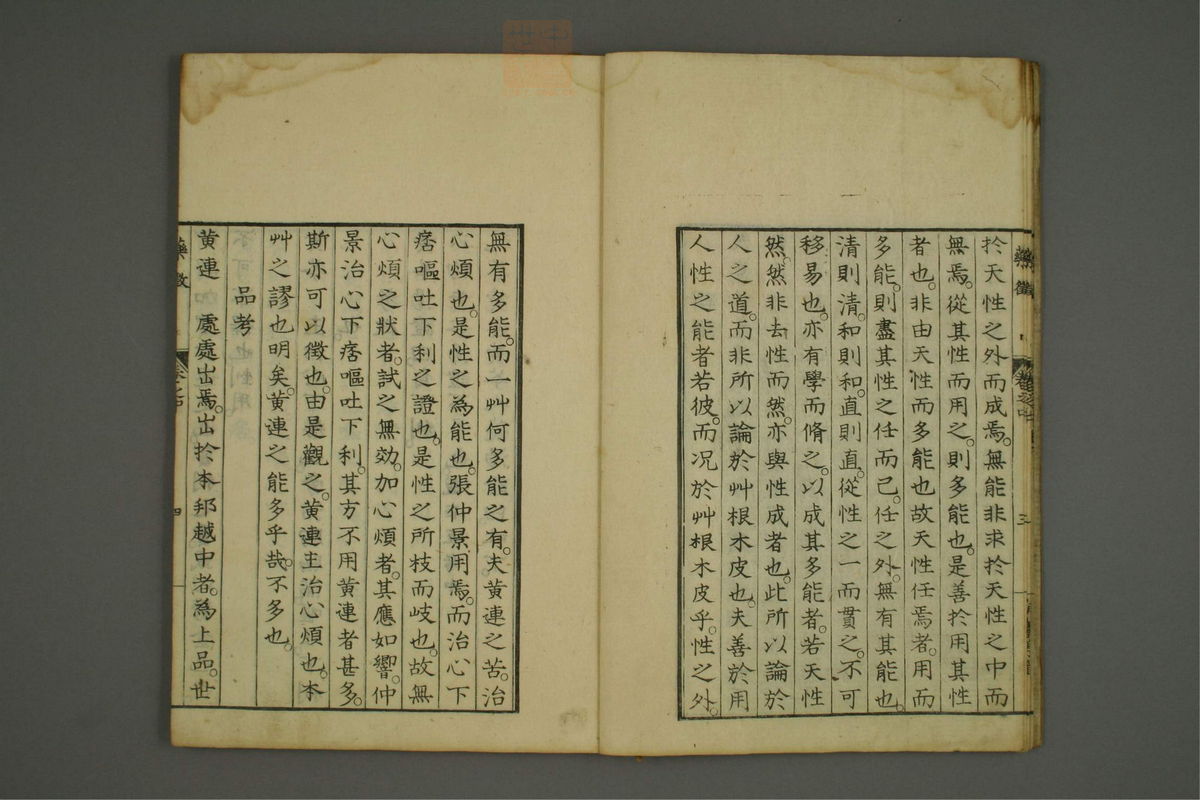 於天性之外而成焉。無能非求於天性之中而
無焉。從其性而用之。則多能也。是善於用其性
者也。非由天性而多能也故天性任焉者。用而
多能。則盡其性之任而已。任之外。無有其能也。
清則清。和則和。直則直。從性之一而貫之。不可
移易也。亦有學而脩之。以成其多能者。若天性
然。然非去性而然。亦與性成者也。此所以論於
人之道。而非所以論於艸根木皮也。夫善於用
人性之能者若彼。而况於艸根木皮乎。性之外。
無有多能。而一艸何多能之有。夫黄連之苦。治
心煩也。是性之為能也。張仲景用焉。而治心下
痞嘔吐下利之證也。是性之所枝而岐也。故無
心煩之狀者。試之無効。加心煩者。其應如響。仲
景治心下痞嘔吐下利。其方不用黄連者甚多。
斯亦可以徵也。由是觀之。黄連主治心煩也。本
艸之謬也明矣。黄連之能多乎哉。不多也。
品考
黄連 處處出焉。出於本邦越中者。為上品。世
藥徵
四
藥徵
三